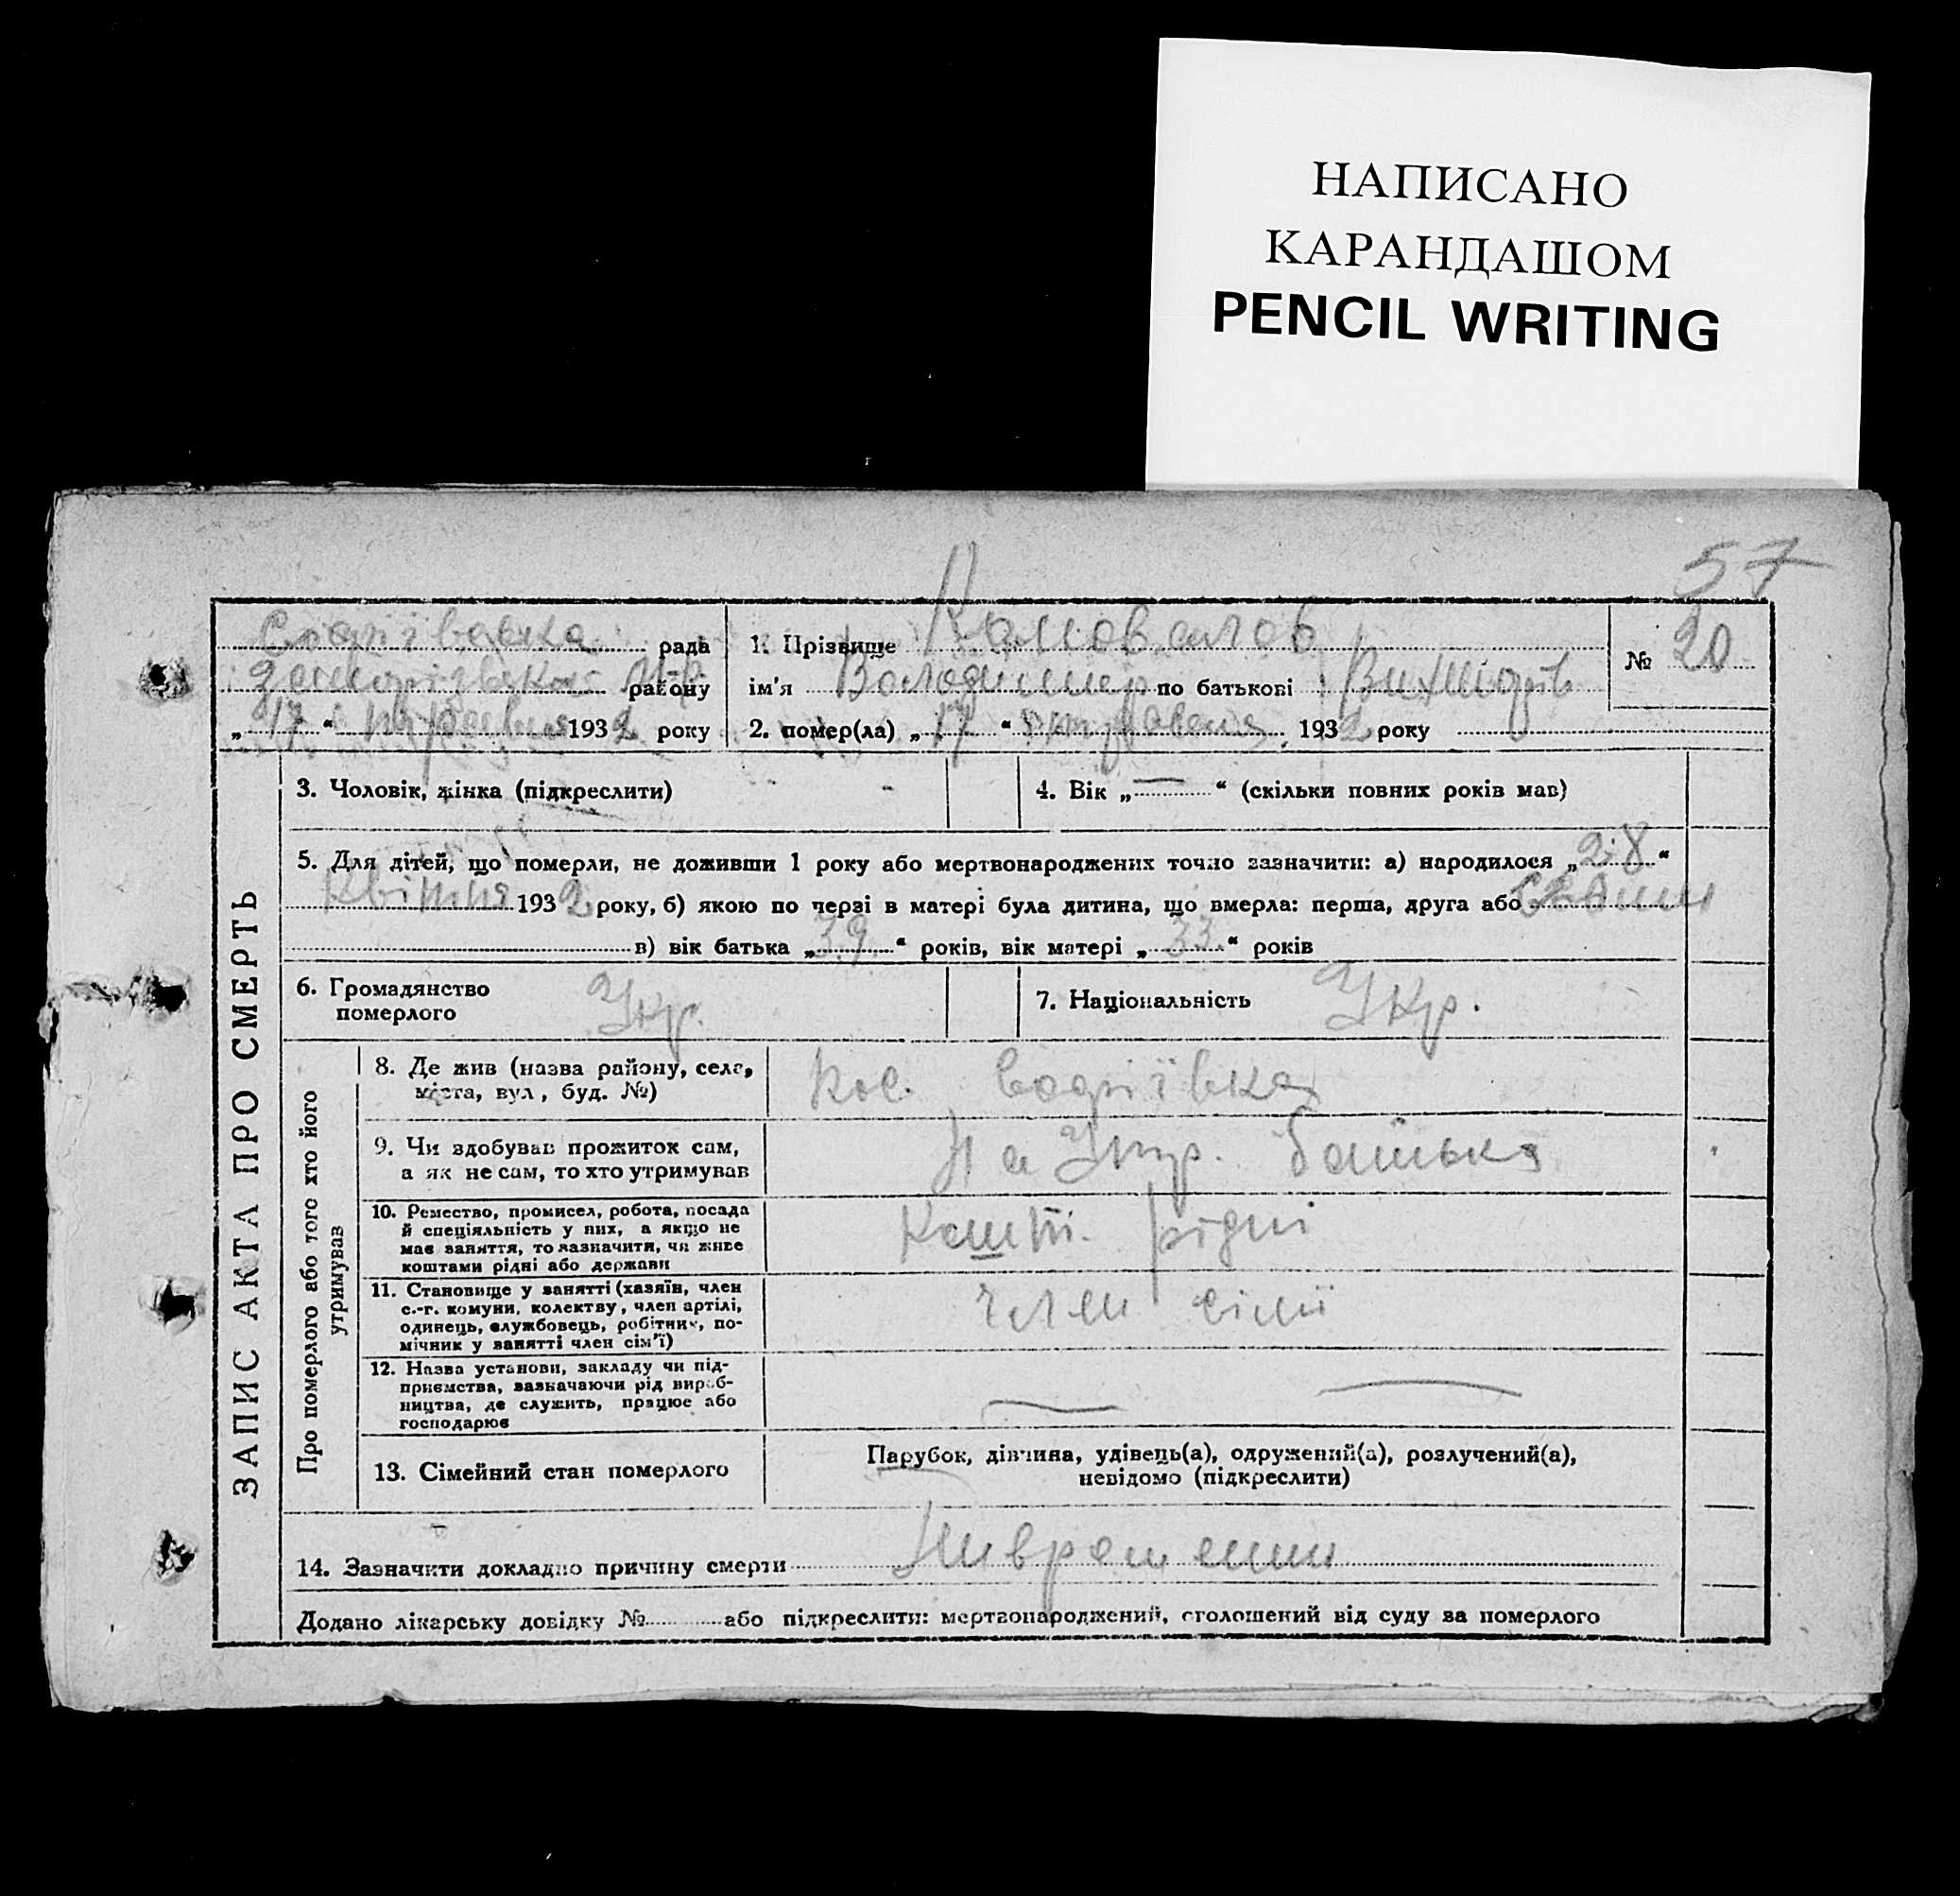 НАПИСАНО
КАРАНДАШОМ
PENCIL WRITING
57
рада
району
„ 17 “ травня 1932 року
1. Прізвище Коновалов
ім'я Володимир по батькові
2. помер(ла) „ 17 “ травня 1932 року
№ 20
ЗАПИС АКТА ПРО СМЕРТЬ
3. Чоловік, жінка (підкреслити)
4. Вік „ — “ (скільки повних років мав)
5. Для дітей, що померли, не доживши 1 року або мертвонароджених точно зазначити: а) народилося „ 28 “
Квітня 1932 року, б) якою по черзі в матері була дитина, що вмерла: перша, друга або
в) вік батька „ 39 “ років, вік матері „ 33 “ років
6. Громадянство
померлого Укр.
7. Національність Укр.
Про померлого або того хто його
утримував
8. Де жив (назва району, села,
міста, вул, буд. №)
9. Чи здобував прожиток сам,
а як не сам, то хто утримував
На Утр. батька
10. Ремество, промисел, робота, посада
й спеціяльність у них, а якщо не
має заняття, то зазначити, чи живе
коштами рідні або держави
Кошти. рідні
11. Становище у занятті (хазяїн, член
с.-г. комуни, колектву, член артілі,
одинець, службовець, робітник, по-
мічник у занятті член сім'ї)
член сімї
12. Назва установи, закладу чи під-
приємства, зазначаючи рід вироб-
ництва, де служить, працює або
господарює
13. Сімейний стан померлого
Парубок, дівчина, удівець(а), одружений(а), розлучений(а),
невідомо (підкреслити)
14. Зазначити докладно причину смерти
Додано лікарську довідку № або підкреслити: мертвонароджений, оголошений від суду за померлого